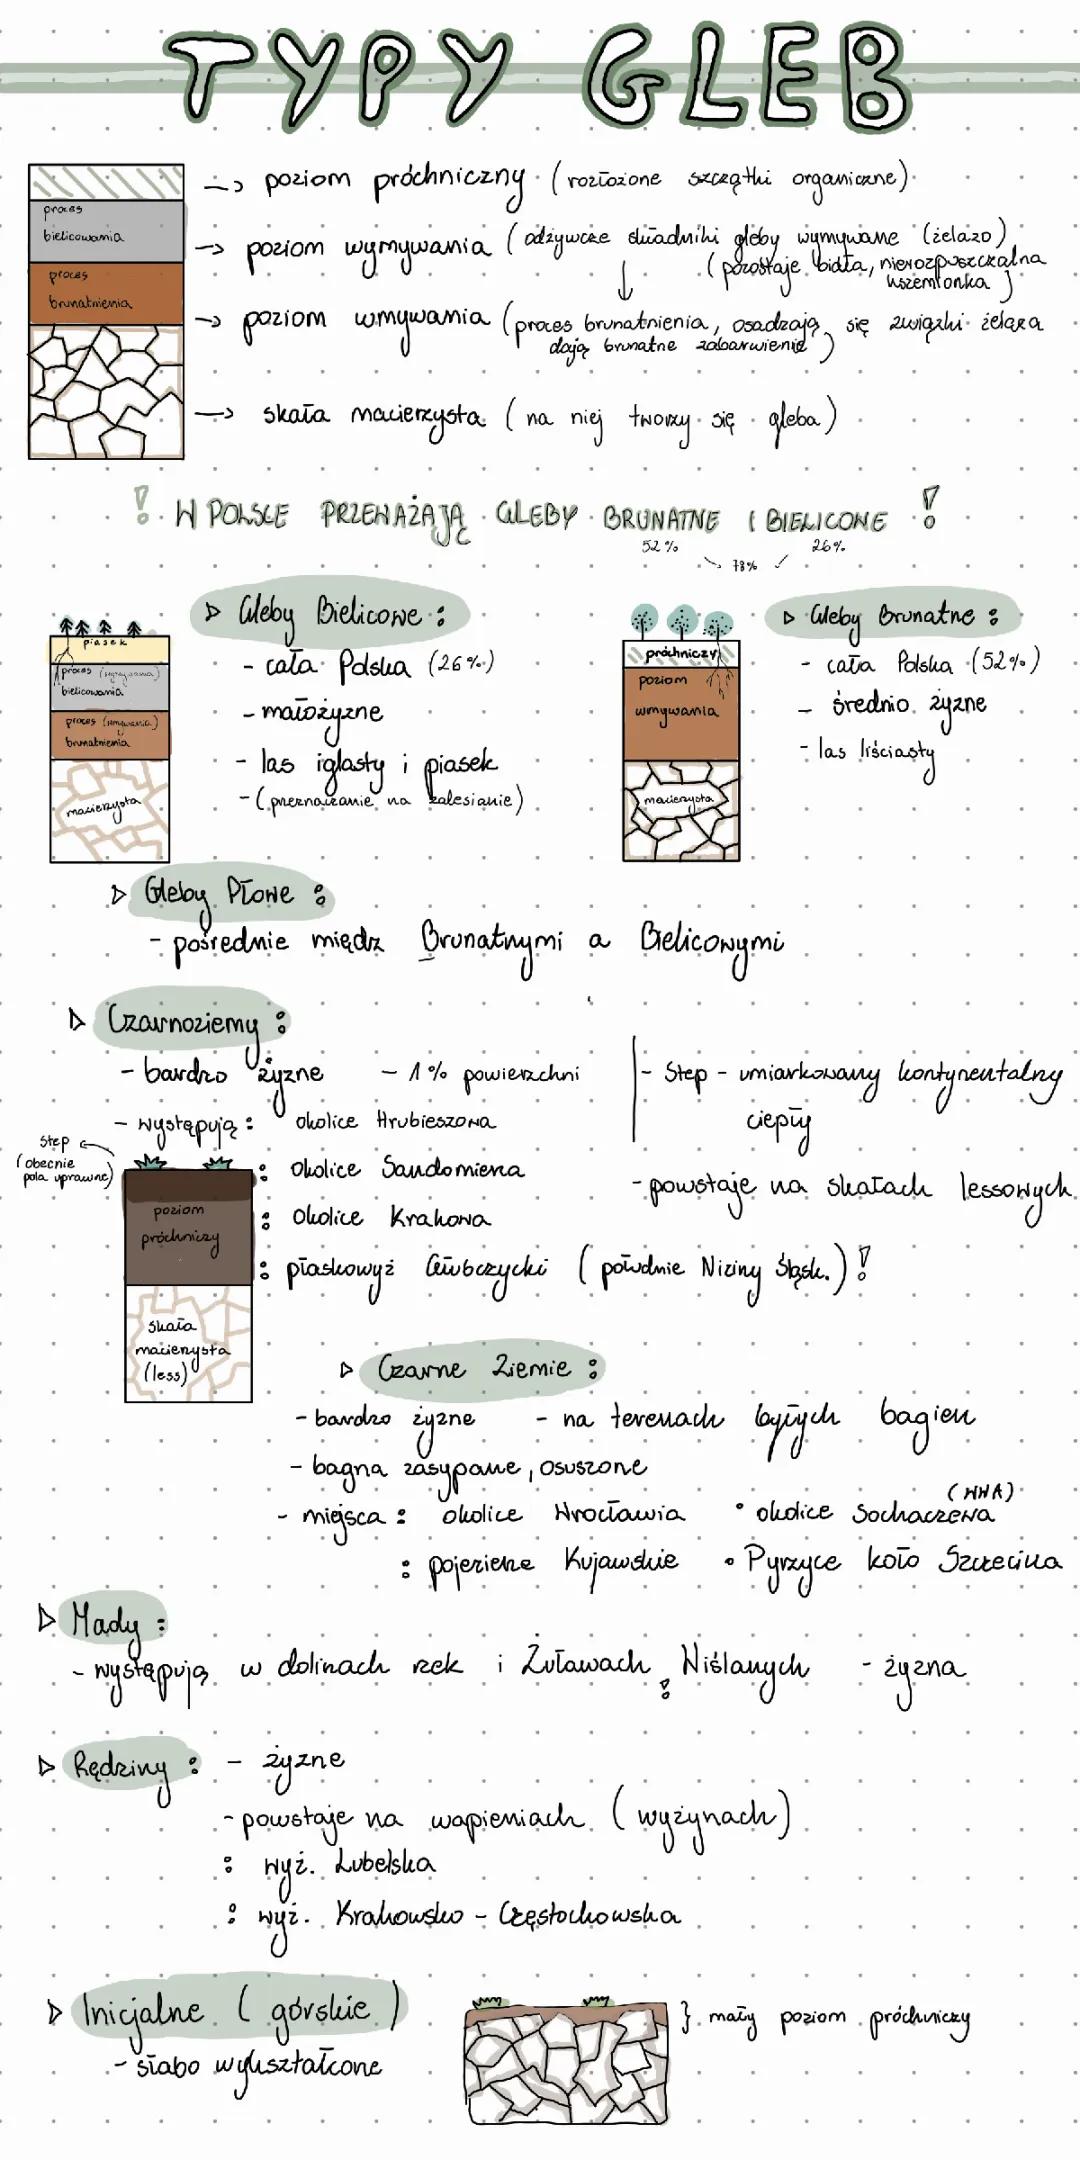 TYPY GLEB
proces
bielicowania
proces
brunatnienia
→ poziom próchniczny (rozłożone szczątki organiczne)
→ poziom wymywania (odżywcze składniki gleby wymywane (żelazo)
↓ (pozostaje biała, nierozpuszczalna
krzemionka)
→ poziom wmywania (proces brunatnienia, osadzają się związki żelaza
dają brunatne zabarwienie)
→ skała macierzysta (na niej tworzy się gleba)
! W POLSCE PRZEWAŻAJĄ GLEBY BRUNATNE I BIELICOWE !
52% 26%
78%
▷ Gleby Bielicowe:
- cała Polska (26%)
- małożyzne
- las iglasty i piasek
- (przeznaczanie na zalesianie)
piasek
proces (wymywania)
bielicowania
proces (wmywania)
brunatnienia
macierzysta
▷ Gleby Brunatne:
- cała Polska (52%)
- średnio żyzne
- las liściasty
próchniczy
poziom
wmywania
macierzysta
▷ Gleby Płowe:
- pośrednie międz Brunatnymi a Bielicowymi
▷ Czarnoziemy:
- bardzo żyzne - 1% powierzchni
- występują: okolice Hrubieszowa
: okolice Sandomierza
: okolice Krakowa
: płaskowyż Głubczycki (południe Niziny Śląsk.)!
- Step - umiarkowany kontynentalny
ciepły
- powstaje na skałach lessowych
step
(obecnie
pola uprawne)
poziom
próchniczy
skała
macierzysta
(less)
▷ Czarne Ziemie:
- bardzo żyzne - na terenach byłych bagien
- bagna zasypane, osuszone
- miejsca: okolice Wrocławia • okolice Sochaczewa (WWA)
: pojezierze Kujawskie • Pyrzyce koło Szczecina
▷ Mady:
- występują w dolinach rzek i Żuławach Wiślanych! - żyzna
▷ Rędziny: - żyzne
- powstaje na wapieniach (wyżynach)
: wyż. Lubelska
: wyż. Krakowsko - Częstochowska
▷ Inicjalne (górskie)
- słabo wykształcone
} mały poziom próchniczy